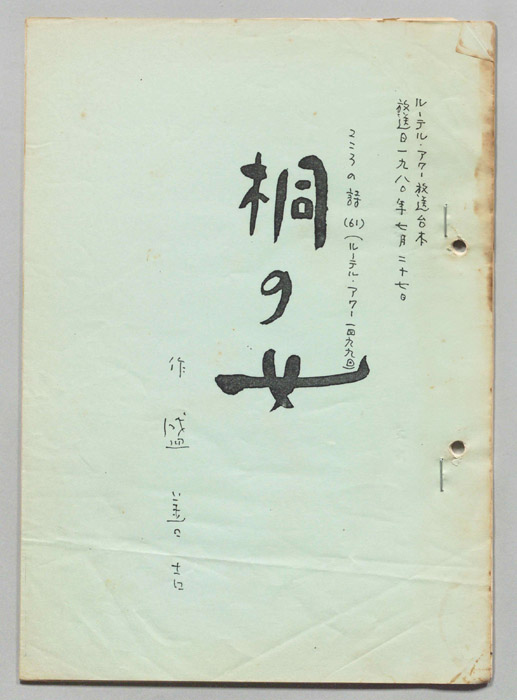 ルーテル・アワー放送台本
放送日一九八〇年七月二十七日
こころの詩(61)(ルーテル・アワー一四九九回)
桐の女
作 盛 善吉